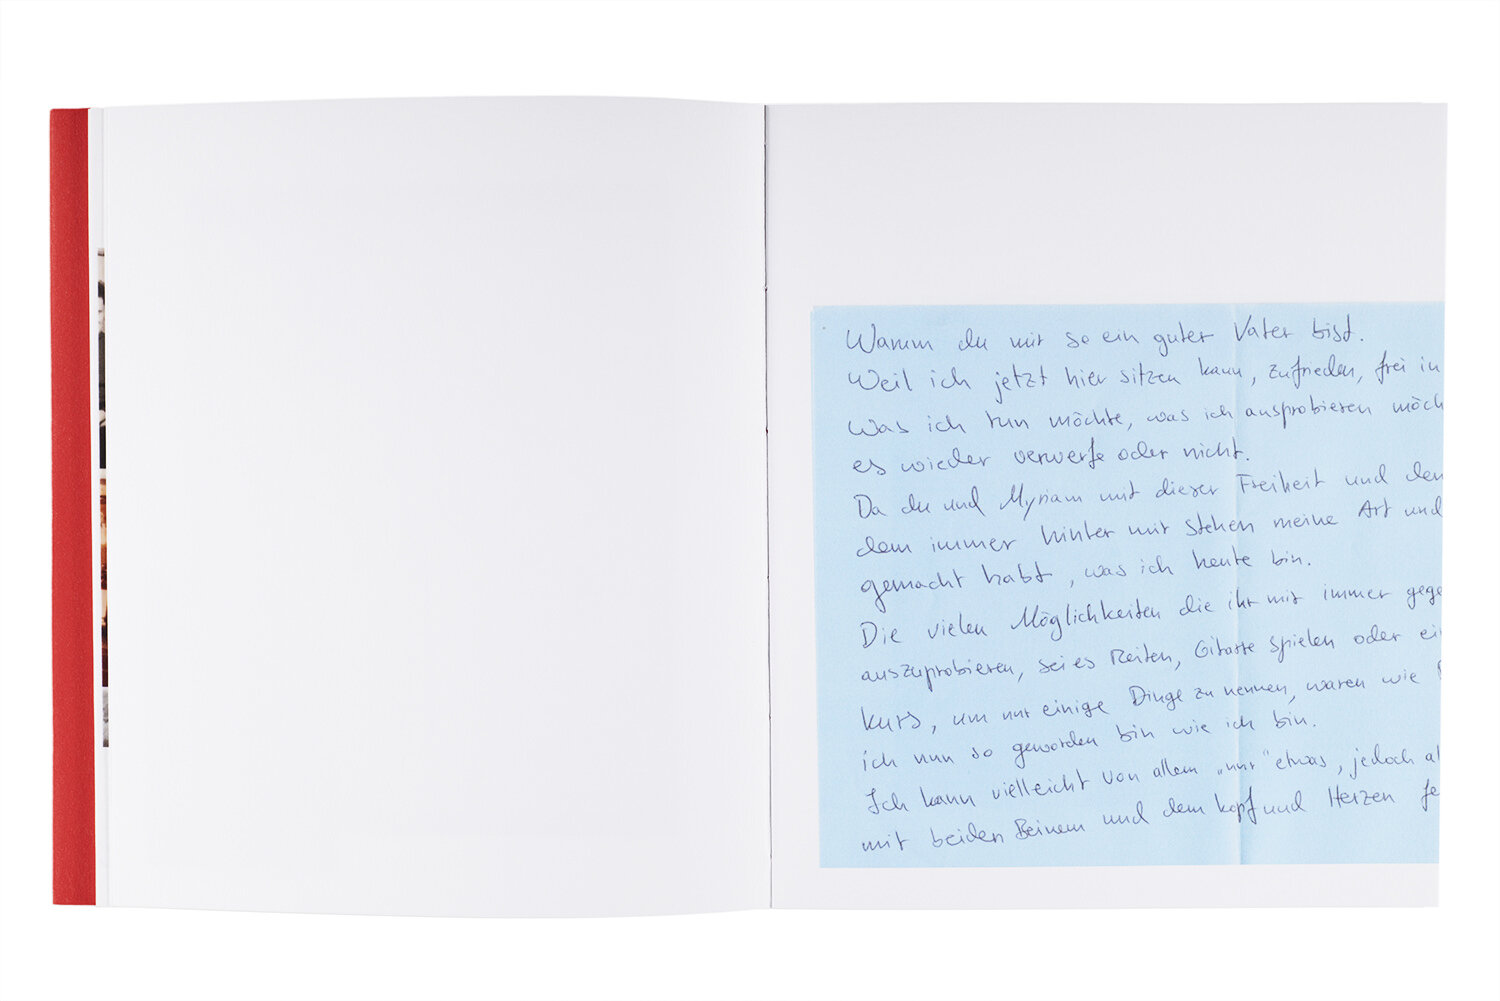 Warum du mir so ein guter Vater bist.
Weil ich jetzt hier sitzen kann, zufrieden, frei in
Was ich tun möchte, was ich ausprobieren möch
es wieder verwerfe oder nicht.
Da du und Myriam mit dieser Freiheit und dem
dem immer hinter mir stehen meine Art und
gemacht habt, was ich heute bin.
Die vielen Möglichkeiten die ihr mir immer gege
auszuprobieren, sei es Reiten, Gitarre spielen oder ei
kurs, um nur einige Dinge zu nennen, waren wie
ich nun so geworden bin wie ich bin.
Ich kann vielleicht von allem „nur" etwas, jedoch al
mit beiden Beinen und dem Kopf und Herzen fe